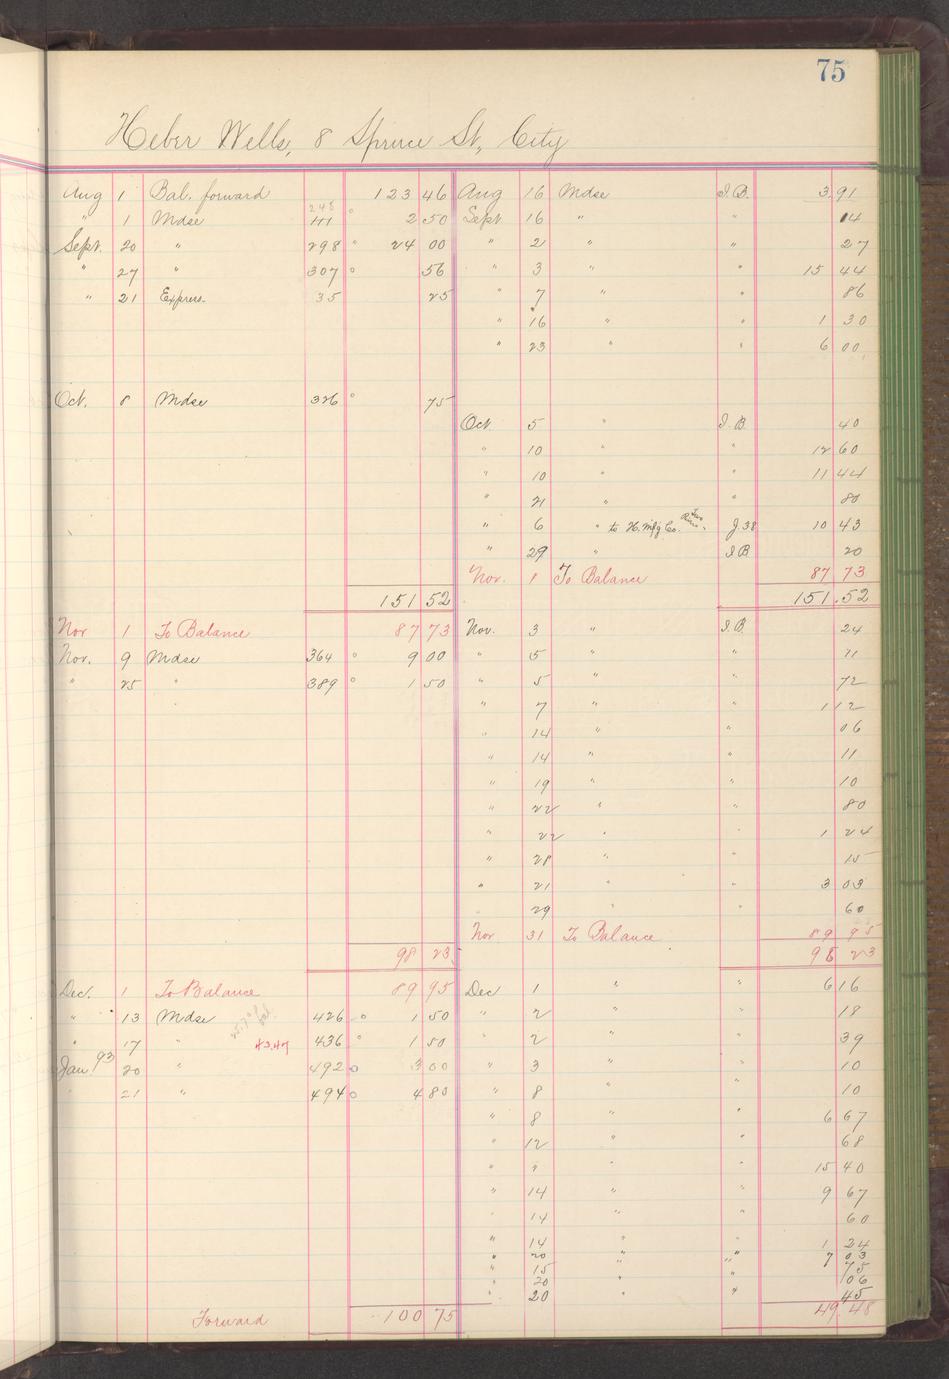 75
Heber Wells, 8 Spruce St, City
Aug 1 Bal. forward 123 46 Aug 16 Mdse I.B. 3.91
" 1 Mdse 248 111 ° 2 50 Sept. 16 " " 14
Sept. 20 " 298 ° 24 00 " 2 " " 27
" 27 " 307 ° 56 " 3 " " 15 44
" 21 Express. 35 25 " 7 " " 86
" 16 " " 1 30
" 23 " " 6 00
Oct. 8 Mdse 326 ° 75
Oct. 5 " I.B. 40
" 10 " " 12 60
" 10 " " 11 44
" 21 " " 80
" 6 " to H. Mfg Co. Two Rivers. J. 38 10 43
" 29 " I.B 20
Nov. 1 To Balance 87 73
151 52 151.52
Nov 1 To Balance 87 73 Nov. 3 " I.B. 24
Nov. 9 Mdse 364 ° 9 00 " 5 " " 21
" 25 " 389 ° 1 50 " 5 " " 72
" 7 " " 1 12
" 14 " " 06
" 14 " " 11
" 19 " " 10
" 22 " " 80
" 22 " " 1 24
" 28 " " 15
" 21 " " 3 03
" 29 " " 60
Nov 31 To Balance 89 95
98 23 98 23
Dec. 1 To Balance 89 95 Dec 1 " " 6 16
" 13 Mdse 426 ° 1 50 " 2 " " 18
" 17 " 43.47 436 ° 1 50 " 2 " " 39
Jan 93 20 " 492 ° 3 00 " 3 " " 10
21 " 494 ° 4 80 " 8 " " 10
" 8 " " 6 67
" 12 " " 68
" " " " 15 40
" 14 " " 9 67
" 14 " " 60
" 14 " " 1 24
" 20 " " 7 03
" 15 75
" 20 " " 06
" 20 " " 45
Forward 100 75 49.48